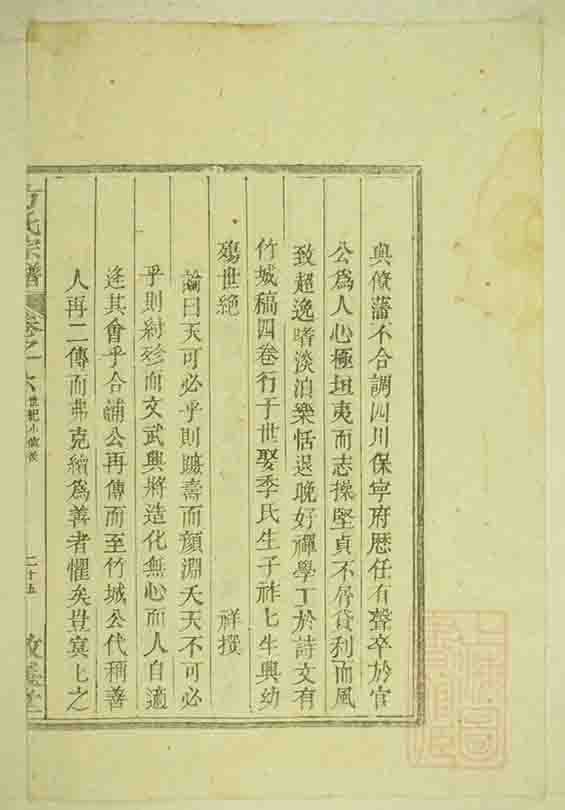 與僚藩不合調四川保寧府歷任有聲卒於官
公爲人心極坦夷而志操堅貞不屑貨利而風
致超逸嗜淡泊樂恬退晚好禪學工於詩文有
竹城稿四卷行于世娶季氏生子祚七生興幼
殤世絕 祥撰
論曰天可必乎則蹠壽而顏淵夭天不可必
乎則紂殄而文武興將造化無心而人自適
逢其會乎合 公再傳而至竹城公代稱善
人再二傳而弗克續爲善者懼矣豈冥七之
方氏宗譜 卷之十六 世紀小傳 二十五 敦善堂
上海圖書館藏